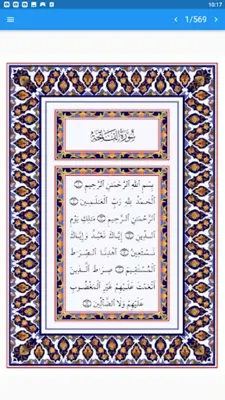 10:17
1/569
سورة الفاتحة
بِسْمِ اللَّهِ الرَّحْمَٰنِ الرَّحِيمِ ۝
الْحَمْدُ لِلَّهِ رَبِّ الْعَالَمِينَ ۝
الرَّحْمَٰنِ الرَّحِيمِ ۝ مَالِكِ يَوْمِ
الدِّينِ ۝ إِيَّاكَ نَعْبُدُ وَإِيَّاكَ
نَسْتَعِينُ ۝ اهْدِنَا الصِّرَاطَ
الْمُسْتَقِيمَ ۝ صِرَاطَ الَّذِينَ
أَنْعَمْتَ عَلَيْهِمْ غَيْرِ الْمَغْضُوبِ
عَلَيْهِمْ وَلَا الضَّالِّينَ ۝